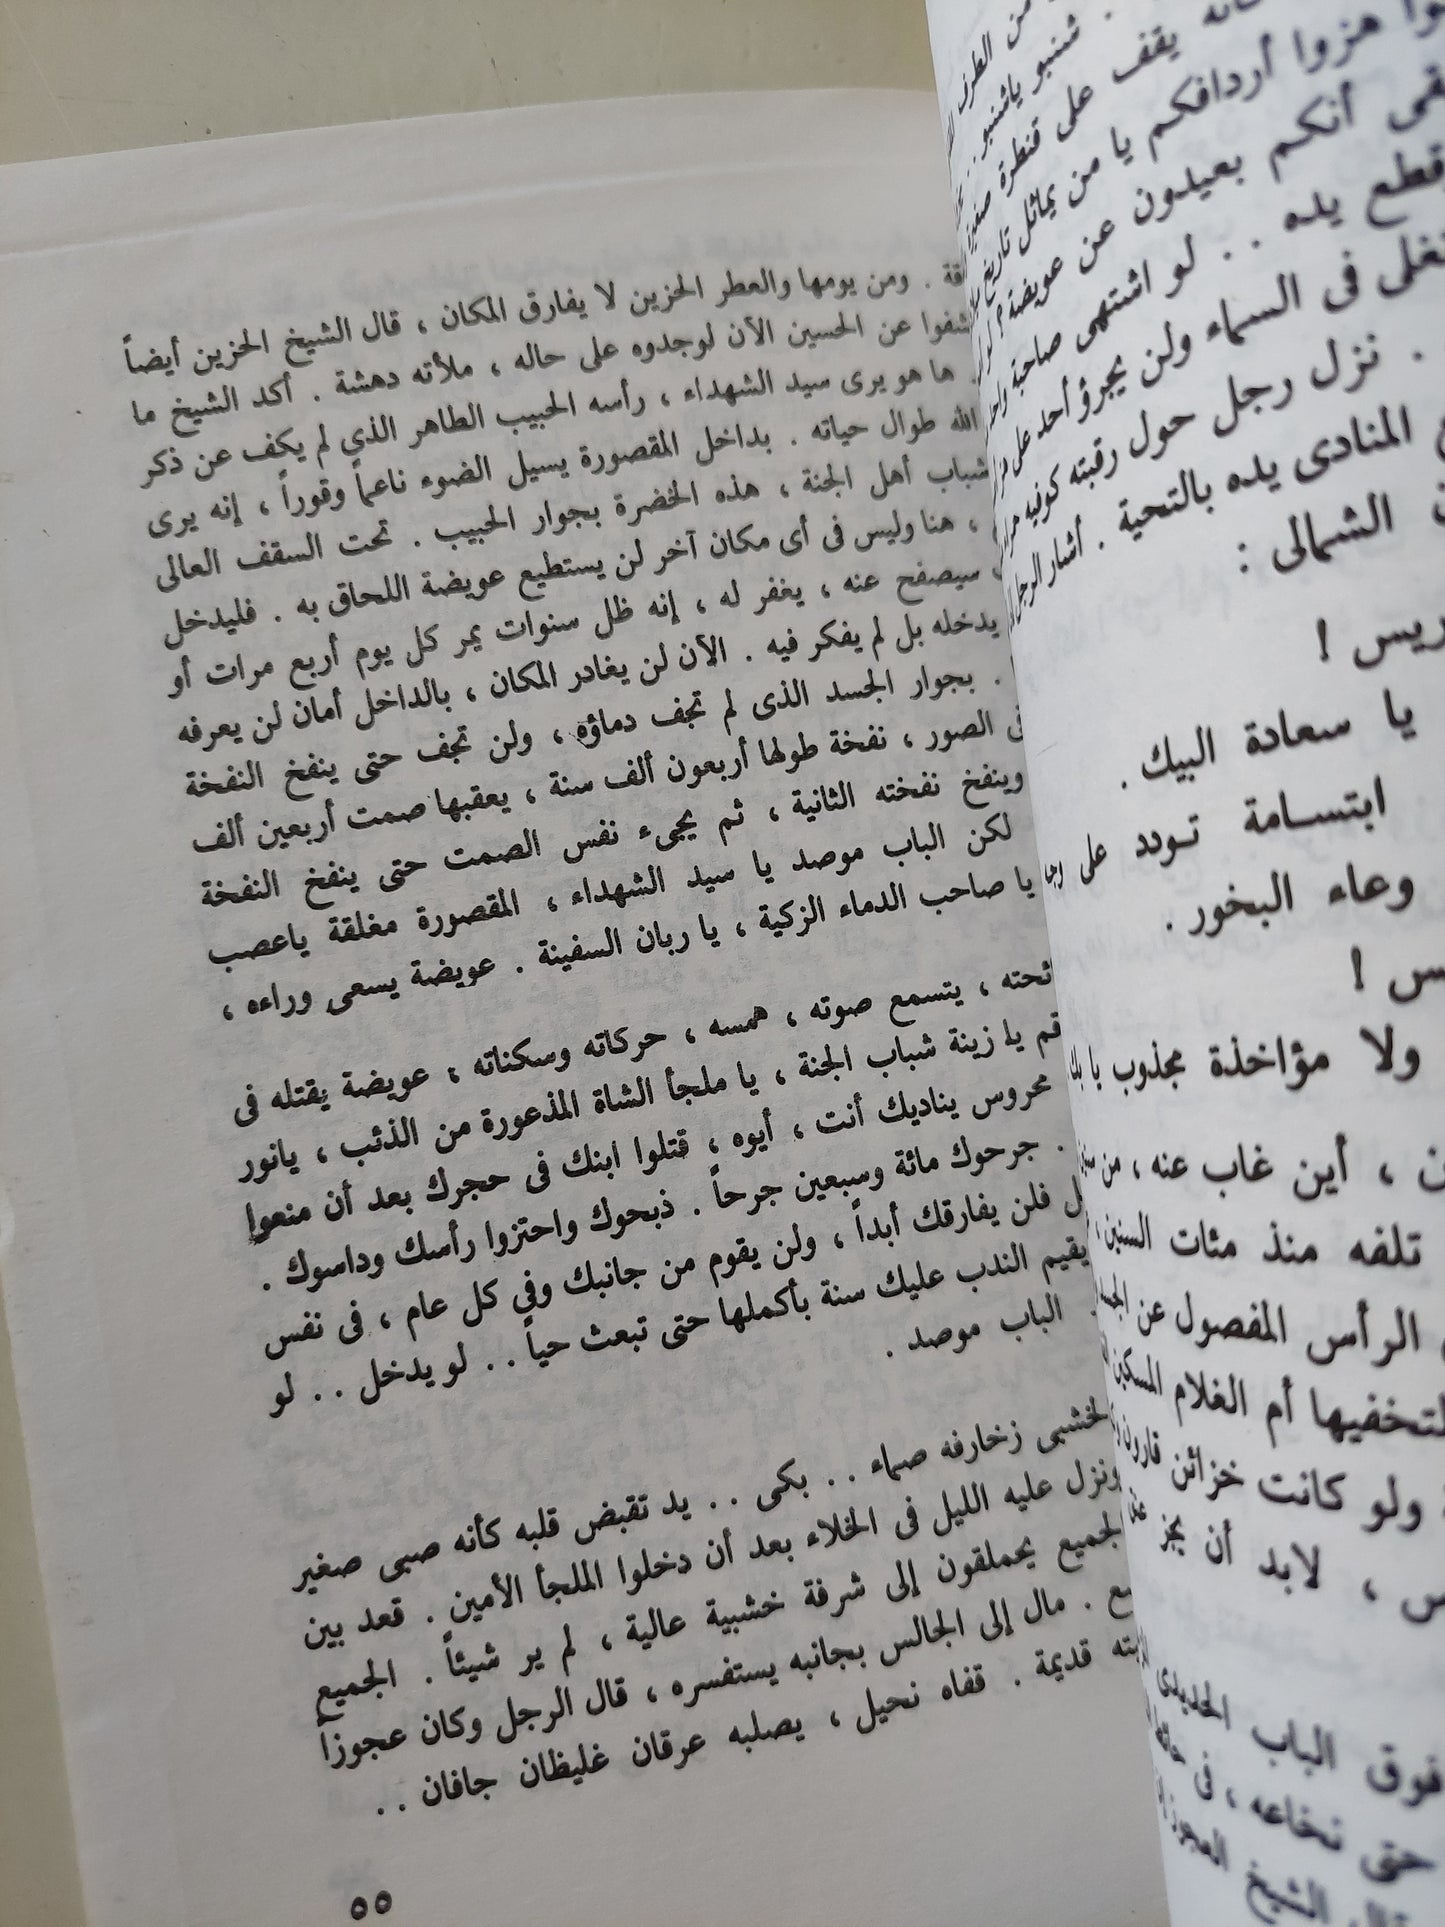 من الطرف
شنبو ياشنبو . .
يقف على قنطرة صغيرة
هزوا أردافكم يا من يماثل تاريخ
أنكم بعيدون عن عويضة ؟ لو
قطع يده . . لو اشتهى صاحبة واحد
فى السماء ولن يجرؤ أحد على
. نزل رجل حول رقبته كوفيه
المنادى يده بالتحية . أشار الرجل
الشمالى :
يا سعادة البيك .
ابتسامة تودد على
وعاء البخور .
ولا مؤاخذة مجذوب يا بك
، أين غاب عنه ، من
تلفه منذ مئات السنين ،
الرأس المفصول عن الجسد
أم الغلام المسكين
ولو كانت خزائن قارون
، لابد أن يجز
فوق الباب الحديدى
حتى نخاعه ، فى
الشيخ العجوز
. ومن يومها والعطر الحزين لا يفارق المكان ، قال الشيخ الحزين أيضاً
عن الحسين الآن لوجدوه على حاله ، ملأته دهشة . أكد الشيخ ما
. ها هو يرى سيد الشهداء ، رأسه الحبيب الطاهر الذى لم يكف عن ذكر
الله طوال حياته . بداخل المقصورة يسيل الضوء ناعماً وقوراً ، إنه يرى
شباب أهل الجنة ، هذه الخضرة بجوار الحبيب . تحت السقف العالى
، هنا وليس فى أى مكان آخر لن يستطيع عويضة اللحاق به . فليدخل
سيصفح عنه ، يغفر له ، إنه ظل سنوات يمر كل يوم أربع مرات أو
يدخله بل لم يفكر فيه . الآن لن يغادر المكان ، بالداخل أمان لن يعرفه
. بجوار الجسد الذى لم تجف دماؤه ، ولن تجف حتى ينفخ النفخة
فى الصور ، نفخة طولها أربعون ألف سنة ، يعقبها صمت أربعين ألف
وينفخ نفخته الثانية ، ثم يجىء نفس الصمت حتى ينفخ النفخة
لكن الباب موصد يا سيد الشهداء ، المقصورة مغلقة ياعصب
يا صاحب الدماء الزكية ، يا ربان السفينة . عويضة يسعى وراءه ،
، يتسمع صوته ، همسه ، حركاته وسكناته ، عويضة يقتله فى
قم يا زينة شباب الجنة ، يا ملجأ الشاة المذعورة من الذئب ، يانور
محروس يناديك أنت ، أيوه ، قتلوا ابنك فى حجرك بعد أن منعوا
. جرحوك مائة وسبعين جرحاً . ذبحوك واحتزوا رأسك وداسوك .
فلن يفارقك أبداً ، ولن يقوم من جانبك وفى كل عام ، فى نفس
يقيم الندب عليك سنة بأكملها حتى تبعث حياً . . لو يدخل . . لو
. الباب موصد .
زخارفه صماء . . بكى . . يد تقبض قلبه كأنه صبى صغير
ونزل عليه الليل فى الخلاء بعد أن دخلوا الملجأ الأمين . قعد بين
الجميع يحملقون إلى شرفة خشبية عالية ، لم ير شيئاً . الجميع
. مال إلى الجالس بجانبه يستفسره ، قال الرجل وكان عجوزاً
قديمة . قفاه نحيل ، يصلبه عرقان غليظان جافان . .
٥٥